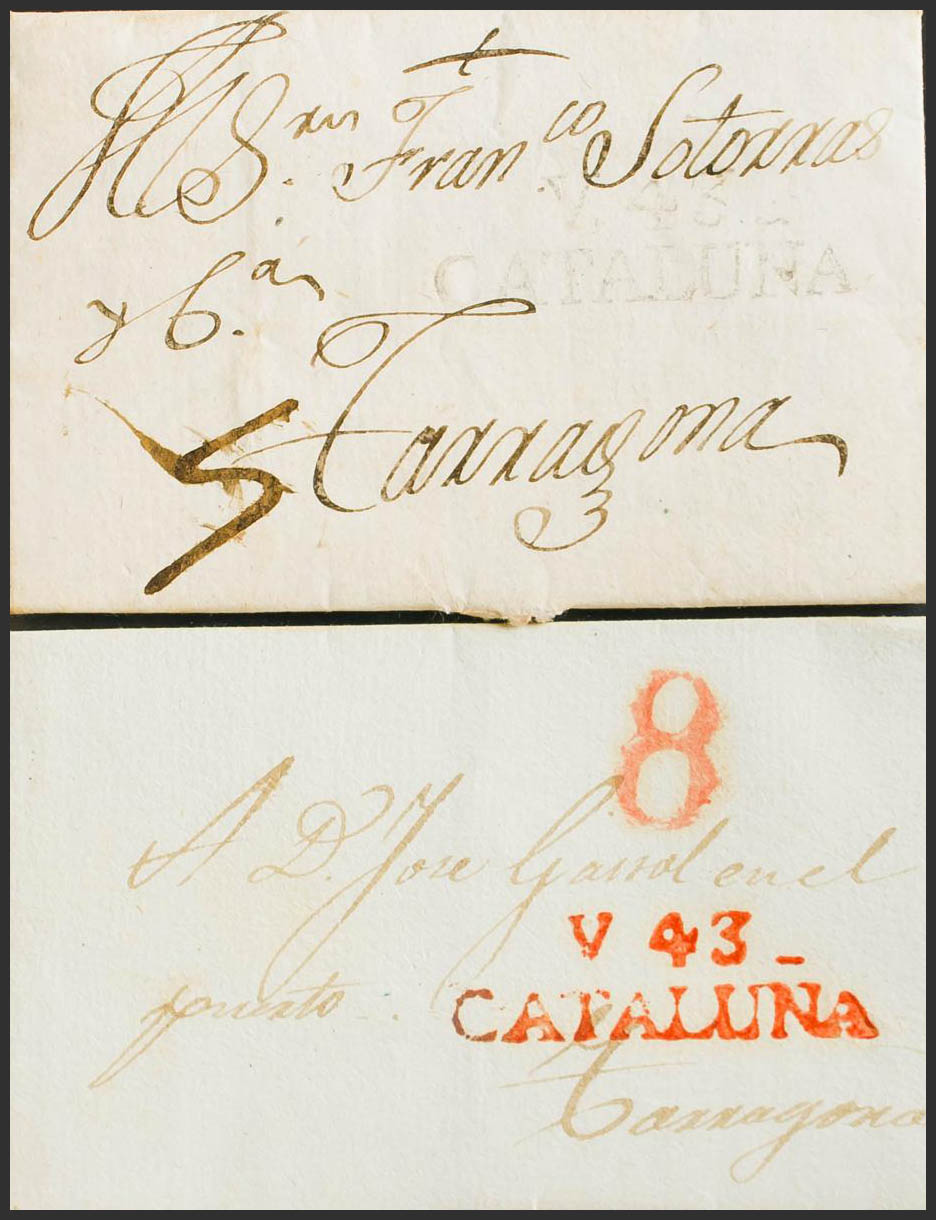 A S.res Fran.co Sotorras
V 43
CATALUÑA
y C.a
Tarragona
5
8
A D.n Jose Gassol en el
V 43
CATALUÑA
puerto
Tarragona